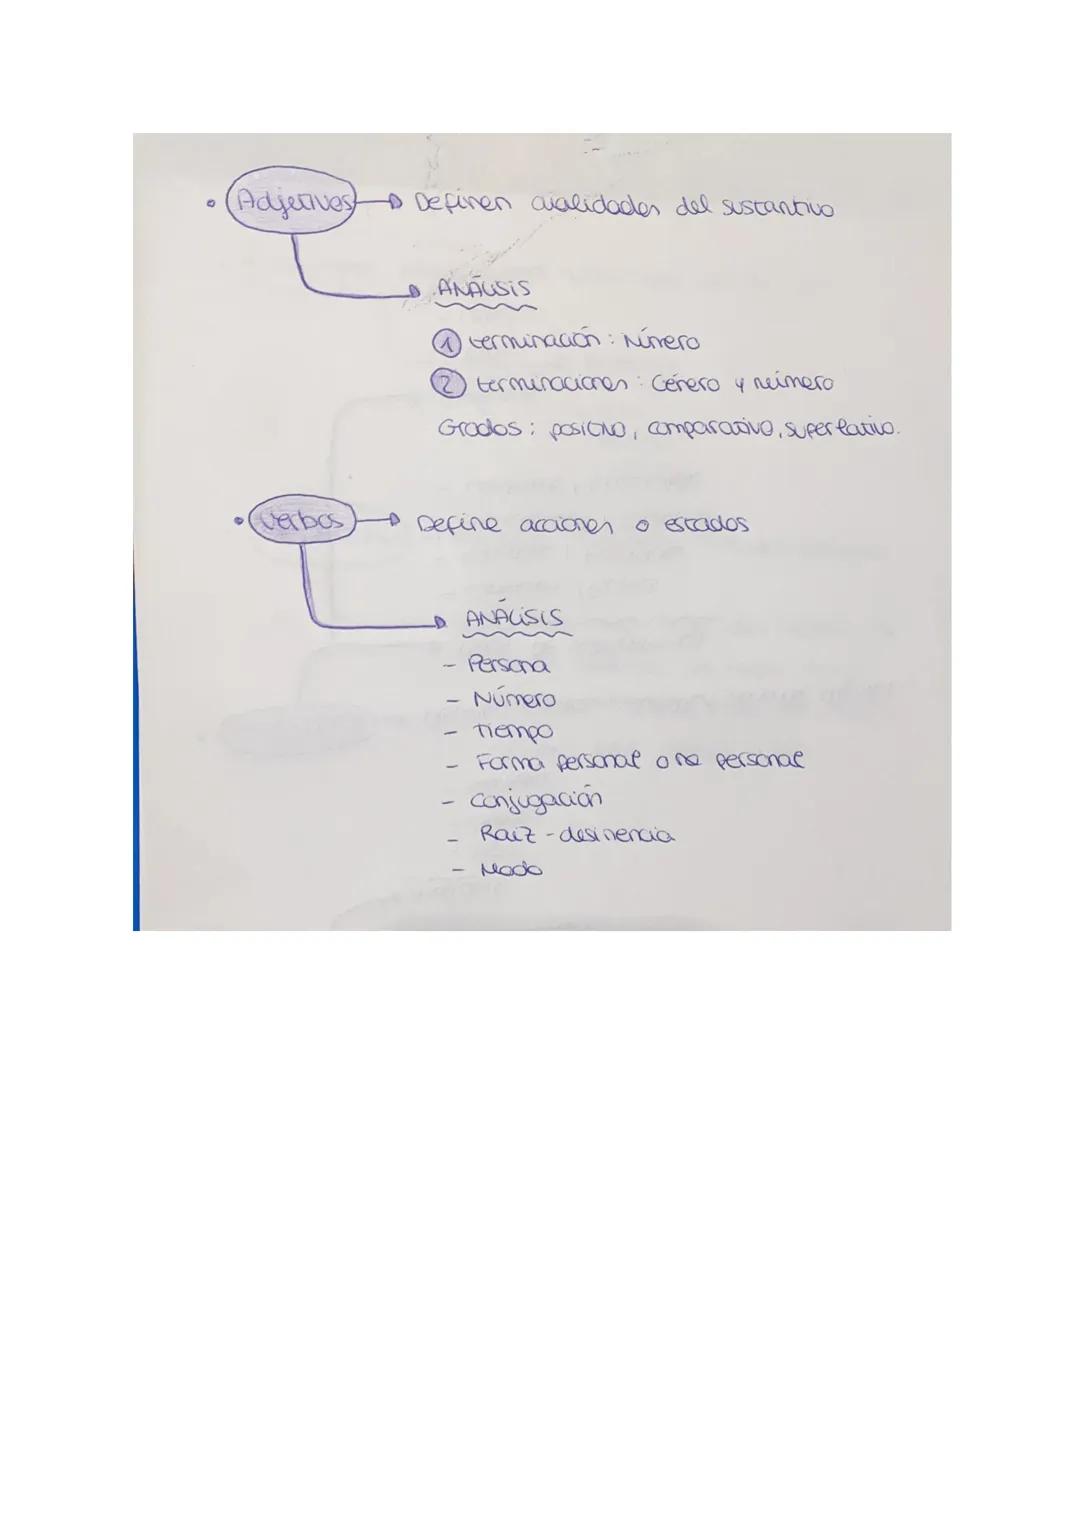 • Adjetivos → Definen cualidades del sustantivo
ANÁLISIS
1 terminación: Número
2 terminaciones: Género y número
Grados: positivo, comparativo, superlativo.
• Verbos → Define acciones o estados
ANÁLISIS
- Persona
- Número
- Tiempo
- Forma personal o no personal
- Conjugación
- Raíz - desinencia
- Modo